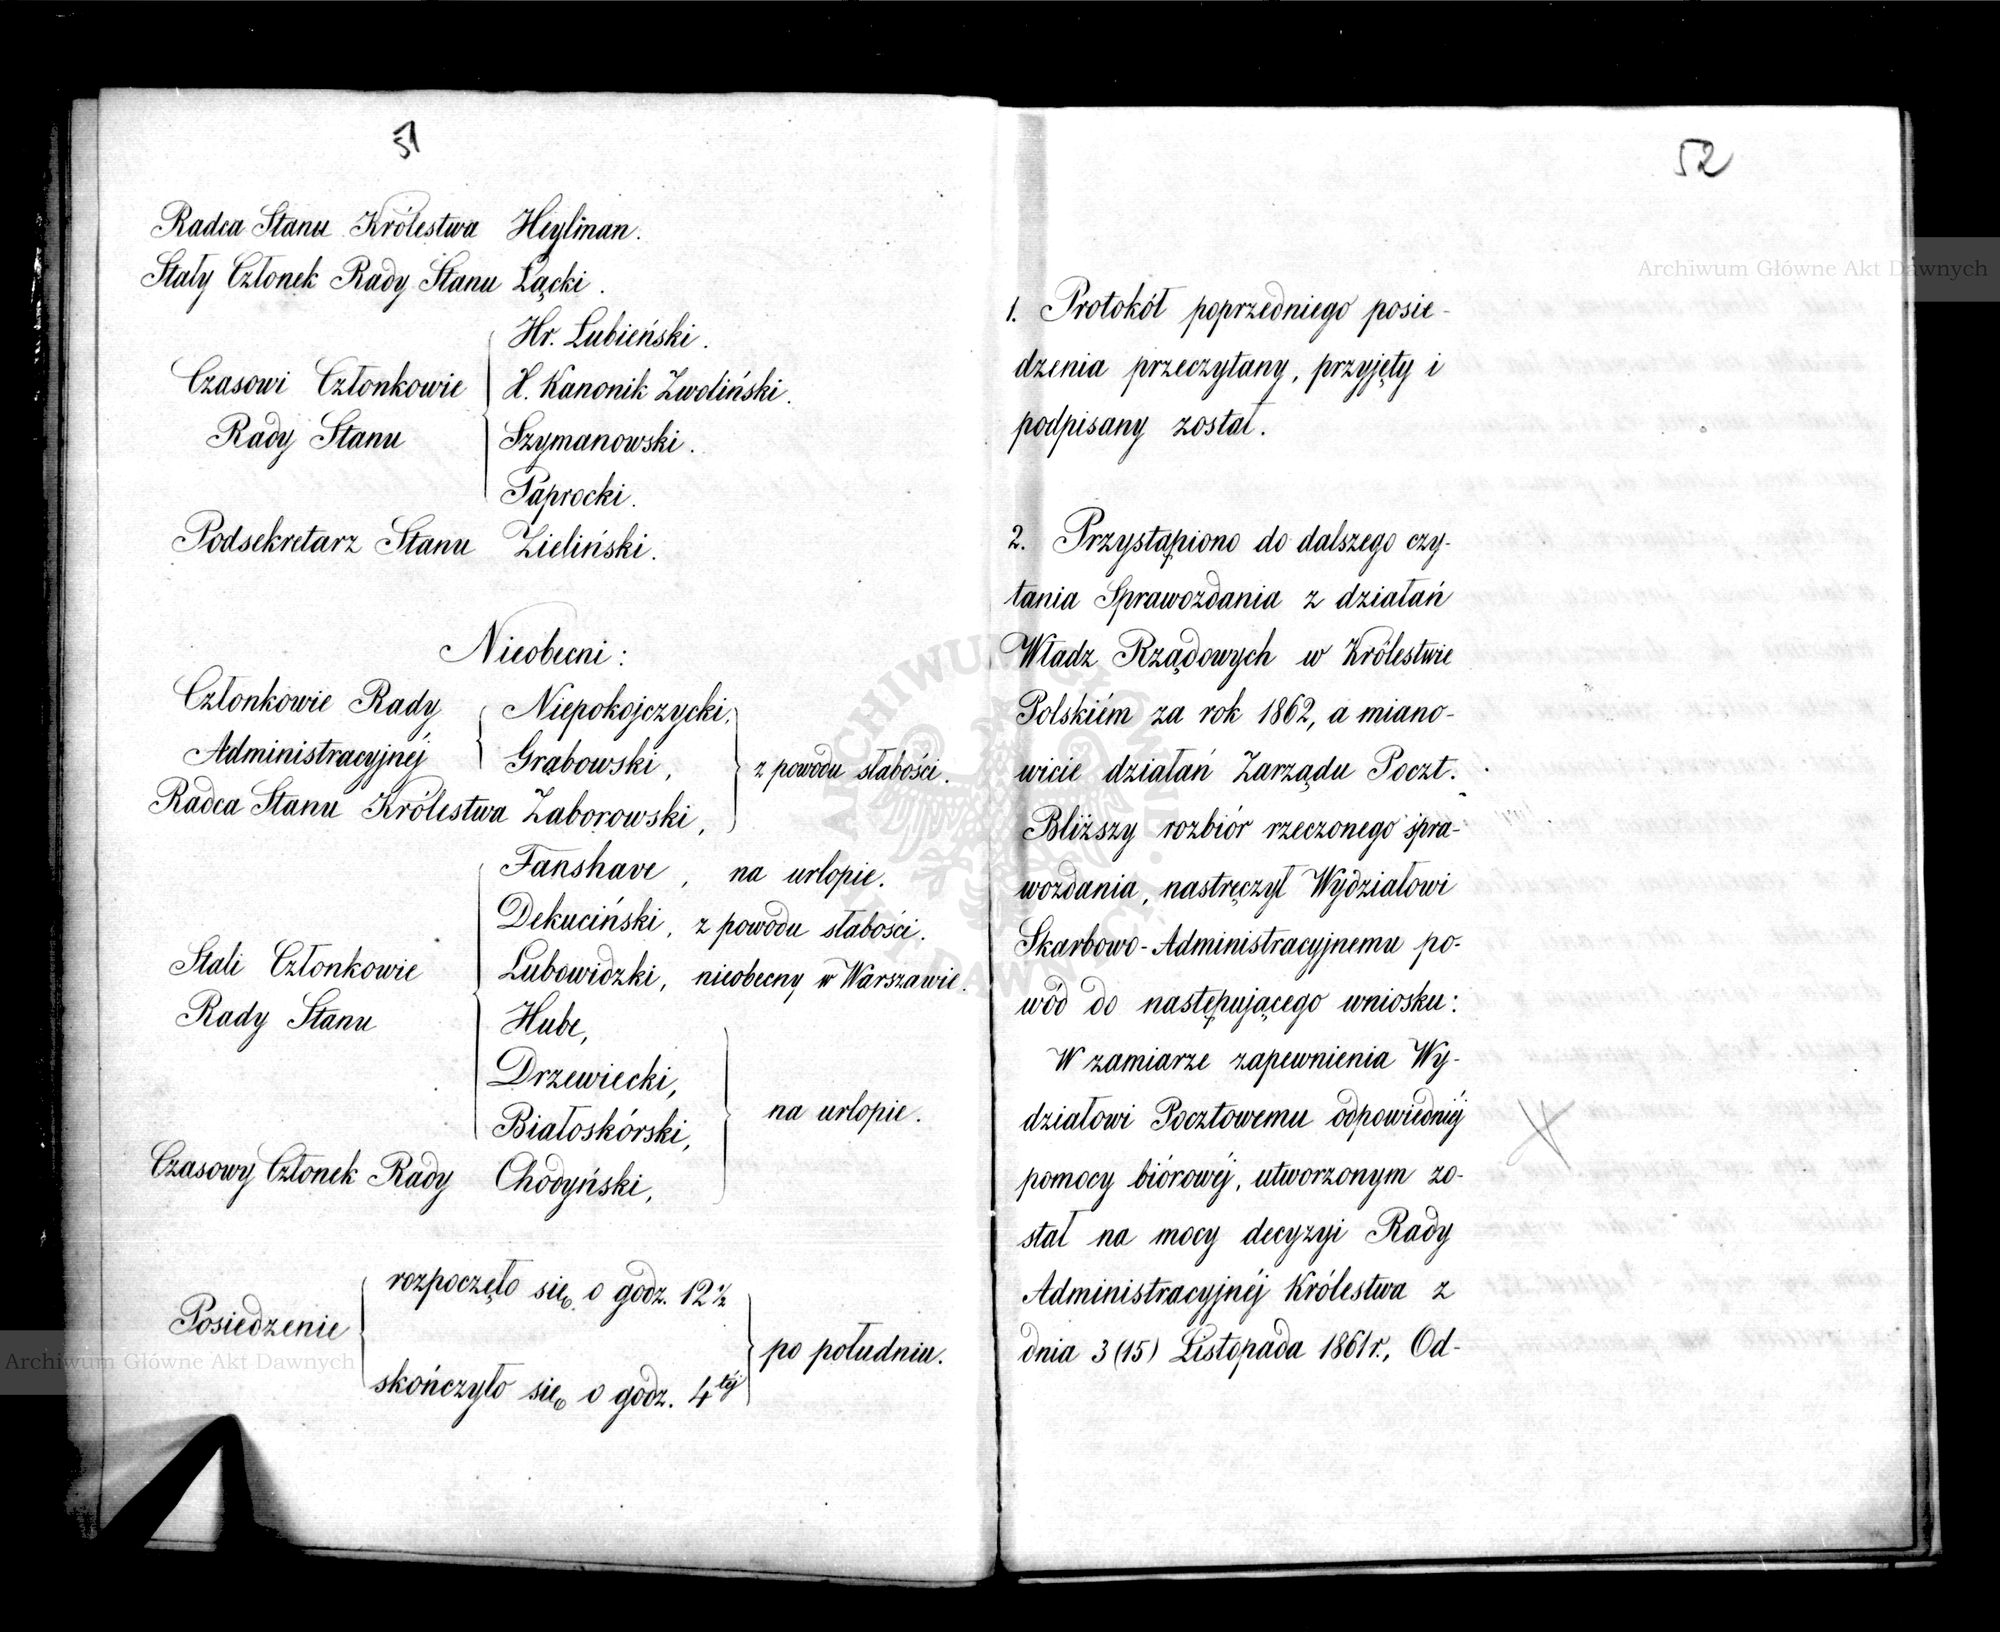 51
Radca Stanu Królestwa Heylman.
Stały Członek Rady Stanu Łącki.
Czasowi Członkowie Rady Stanu
Hr. Łubieński.
X. Kanonik Zwoliński.
Szymanowski.
Paprocki.
Podsekretarz Stanu Zieliński.
Nieobecni:
Członkowie Rady
Administracyjnéj
Niepokojczycki,
Grabowski,
Radca Stanu Królestwa Zaborowski,
z powodu słabości.
Stali Członkowie
Rady Stanu
Fanshave, na urlopie.
Dekuciński, z powodu słabości.
Lubowidzki, nieobecny w Warszawie.
Hube,
Drzewiecki,
Białoskórski,
Czasowy Członek Rady Chodyński,
na urlopie.
Posiedzenie
rozpoczęło się o godz. 12½
skończyło się o godz. 4téj
po południu.
52
1. Protokół poprzedniego posie-
dzenia przeczytany, przyjęty i
podpisany został.
2. Przystąpiono do dalszego czy-
tania Sprawozdania z działań
Władz Rządowych w Królestwie
Polskiém za rok 1862, a miano-
wicie działań Zarządu Poczt.
Bliższy rozbiór rzeczonego spra-
wozdania, nastręczył Wydziałowi
Skarbowo-Administracyjnemu po-
wód do następującego wniosku:
W zamiarze zapewnienia Wy-
działowi Pocztowemu odpowiedniéj
pomocy biórowéj, utworzonym zo-
stał na mocy decyzyi Rady
Administracyjnéj Królestwa z
dnia 3 (15) Listopada 1861 r., Od-
Archiwum Główne Akt Dawnych
Archiwum Główne Akt Dawnych
ARCHIWUM GŁÓWNE AKT DAWNYCH